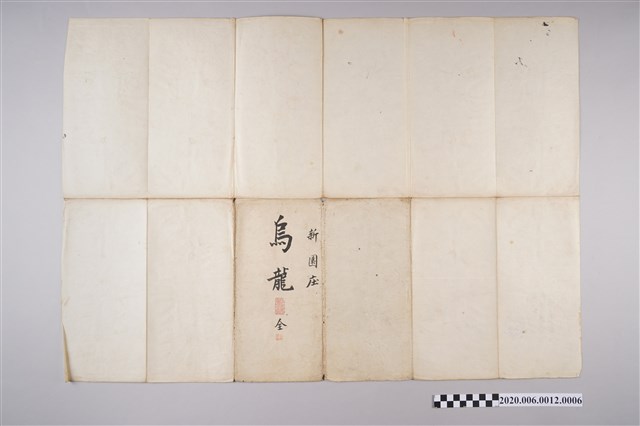 新園庄
烏龍
全
2020.006.0012.0006